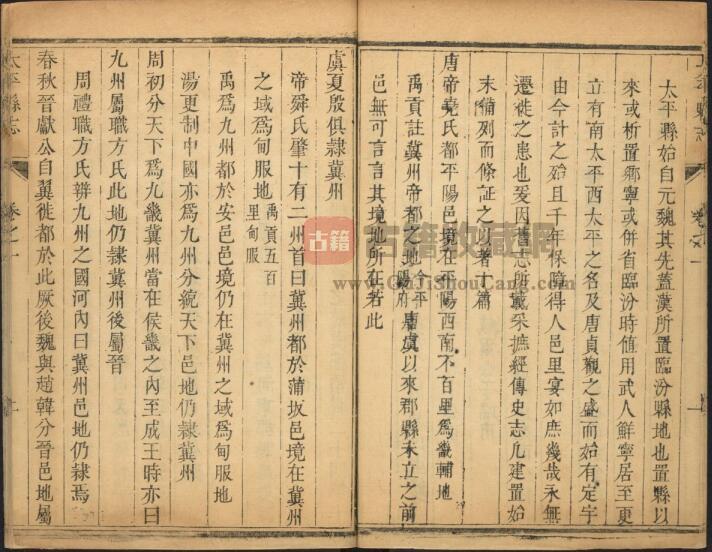 太平縣始自元魏其先葢漢所置臨汾縣地也置縣以
來或析置鄉寧或併省臨汾時值用武人鮮寧居至更
立有南太平西太平之名及唐貞觀之盛而始有定宇
由今計之始且千年保障得人邑里宴如庶幾哉永無
遷徙之患也爰因舊志所載采摭經傳史志凡建置始
末備列而條証之以著于篇
唐帝堯氏都平陽邑境在平陽西南不百里爲畿輔地
禹貢註冀州帝都之地今平陽府唐虞以來郡縣未立之前
邑無可言言其境地所在若此
虞夏殷俱隸冀州
帝舜氏肇十有二州首曰冀州都於蒲坂邑境在冀州
之域爲甸服地禹貢五百里甸服
禹爲九州都於安邑邑境仍在冀州之域爲甸服地
湯更制中國亦爲九州分統天下邑地仍隸冀州
周初分天下爲九畿冀州當在侯畿之內至成王時亦曰
九州屬職方氏此地仍隸冀州後屬晉
周禮職方氏辨九州之國河內曰冀州邑地仍隸焉
春秋晉獻公自翼徙都於此厥後魏與趙韓分晉邑地屬
太平縣志
卷之一
古籍
古籍收藏网
www.GuJiShouCang.com